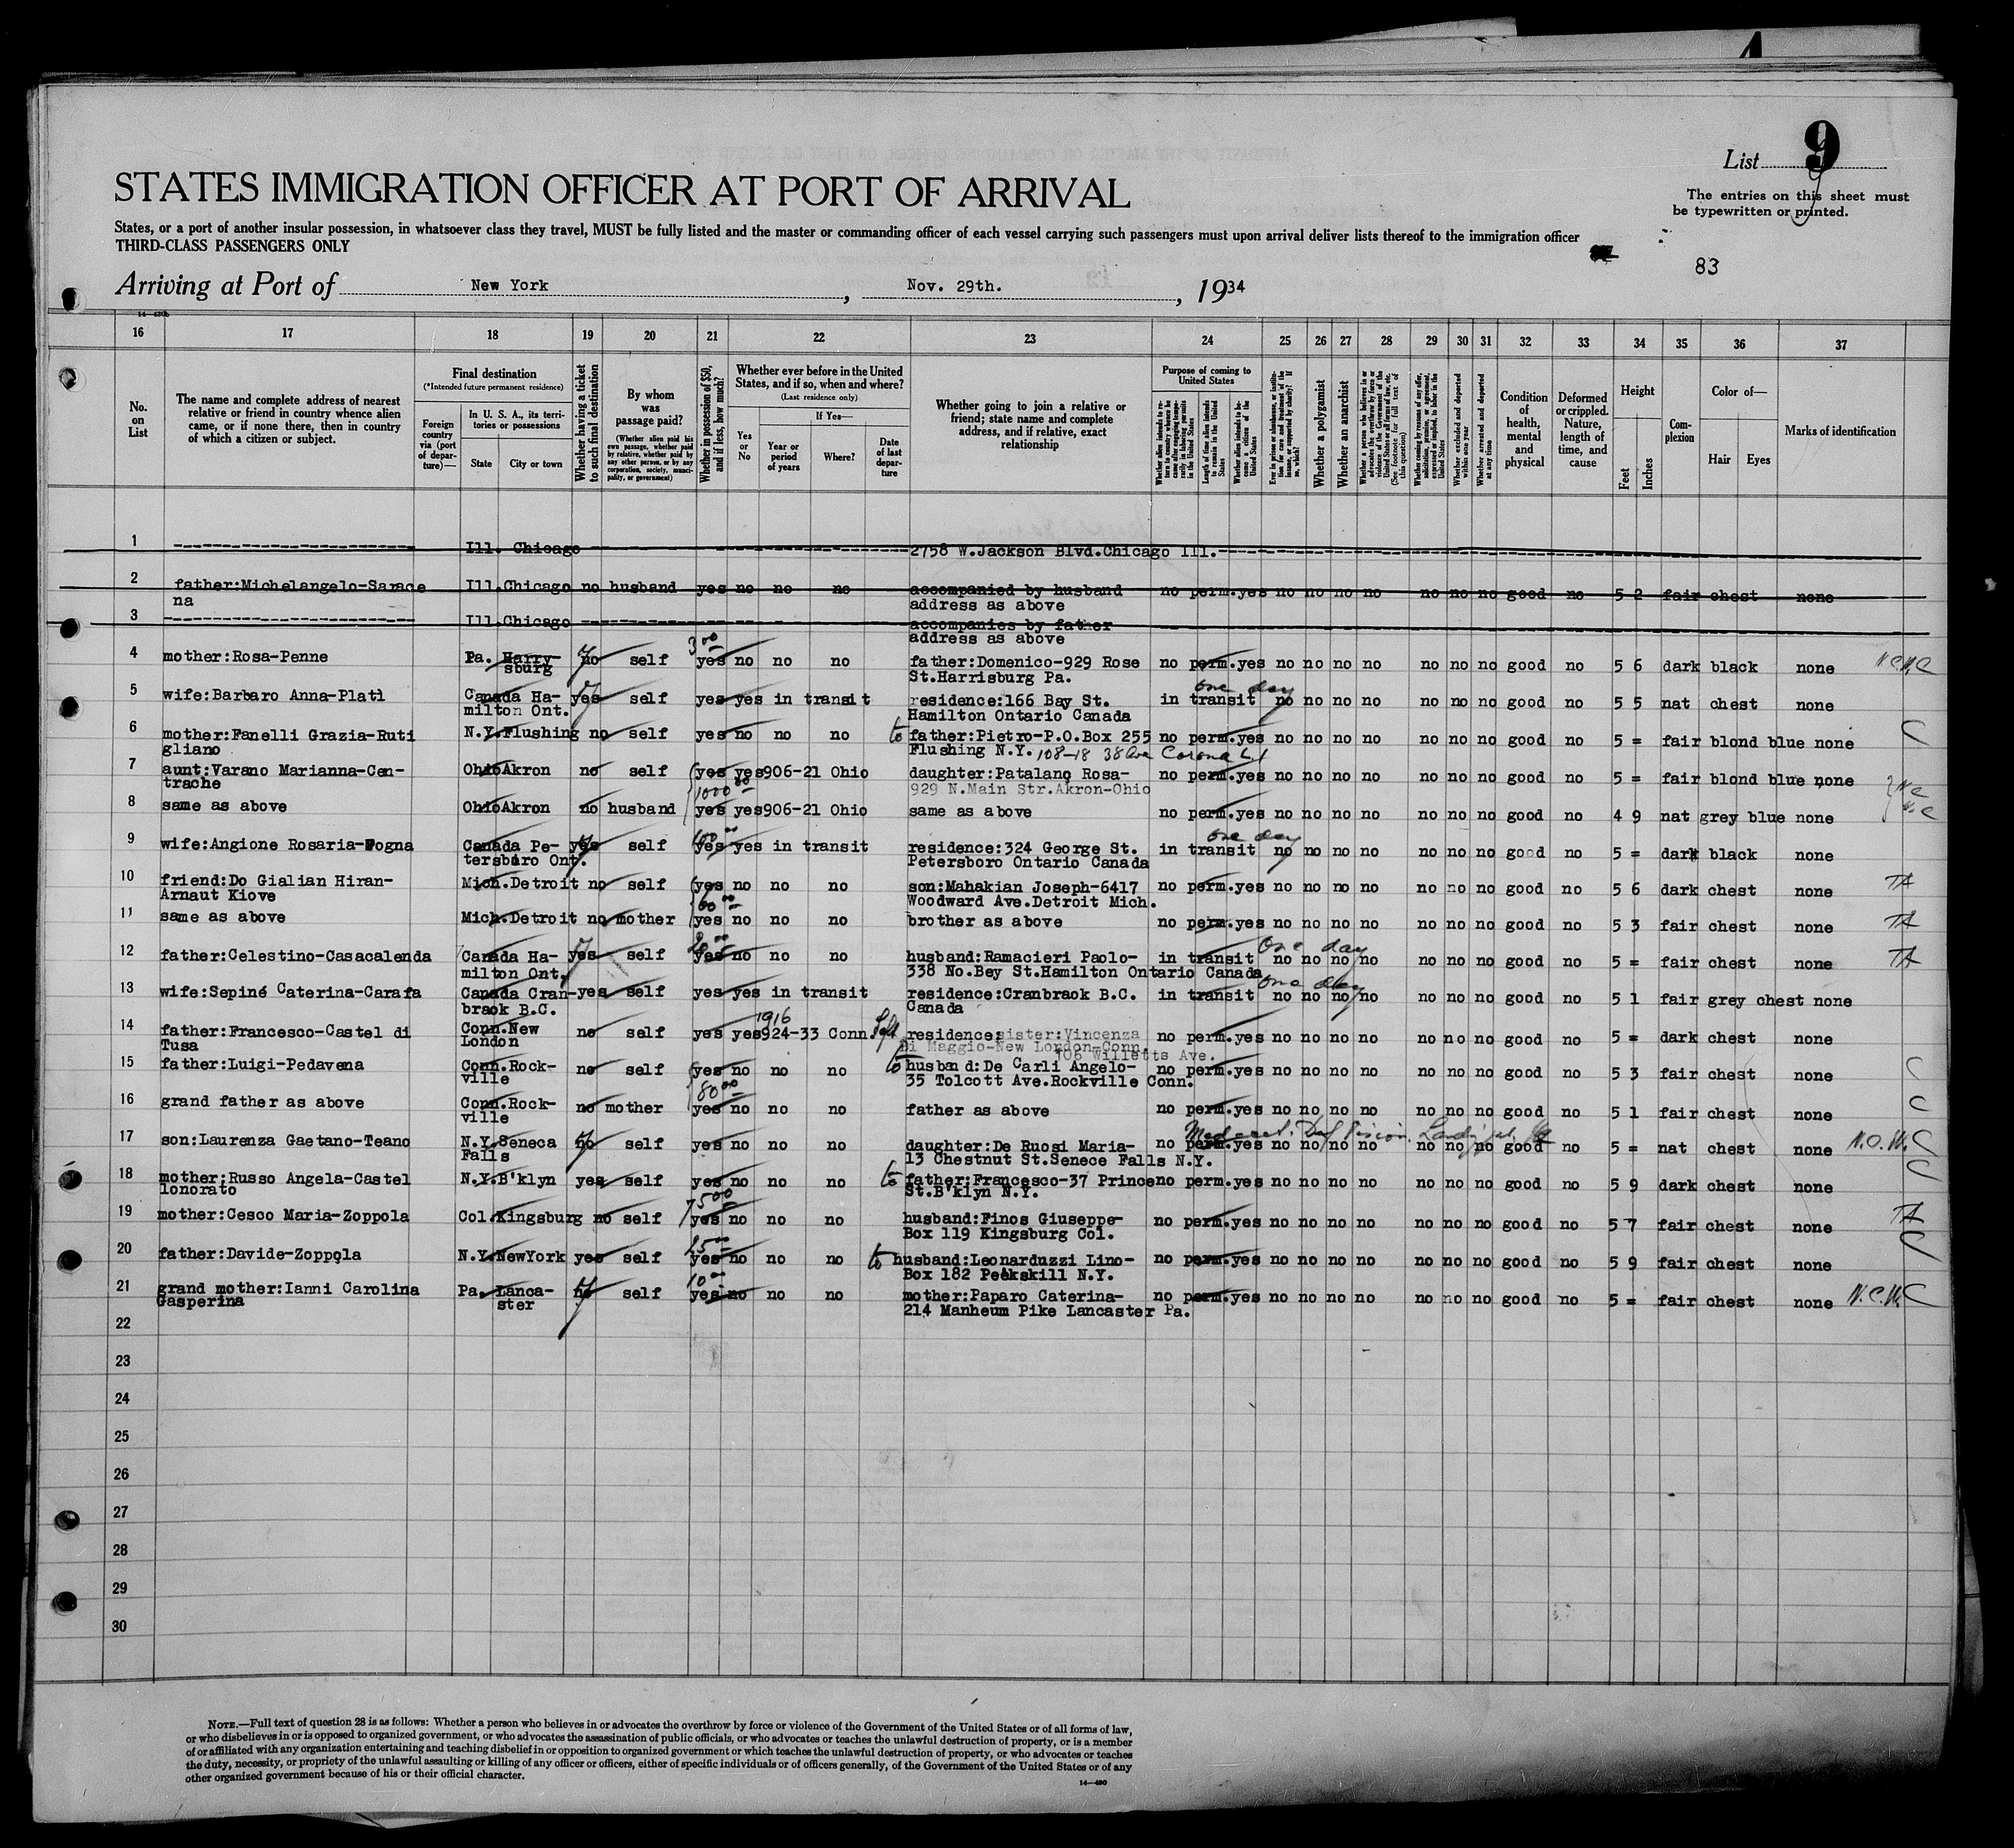 List 9
The entries on this sheet must
be typewritten or printed.
STATES IMMIGRATION OFFICER AT PORT OF ARRIVAL
States, or a port of another insular possession, in whatsoever class they travel, MUST be fully listed and the master or commanding officer of each vessel carrying such passengers must upon arrival deliver lists thereof to the immigration officer
THIRD-CLASS PASSENGERS ONLY
83
Arriving at Port of New York, Nov. 29th., 1934
16 17 18 19 20 21 22 23 24 25 26 27 28 29 30 31 32 33 34 35 36 37
No. on List
The name and complete address of nearest relative or friend in country whence alien came, or if none there, then in country of which a citizen or subject.
Final destination
(*Intended future permanent residence)
Foreign country via (port of departure)—
In U. S. A., its territories or possessions
State City or town
Whether having a ticket to such final destination
By whom was passage paid?
(Whether alien paid his own passage, whether paid by relative, whether paid by any other person, or by any corporation, society, municipality, or government)
Whether in possession of $50, and if less, how much?
Whether ever before in the United States, and if so, when and where?
(Last residence only)
Yes or No
If Yes—
Year or period of years
Where?
Date of last departure
Whether going to join a relative or friend; state name and complete address, and if relative, exact relationship
Purpose of coming to United States
Length of time alien intends to remain in the United States
Whether alien intends to become a citizen of the United States
Whether a polygamist
Whether an anarchist
Whether excluded and deported within one year
Whether arrested and deported at any time
Condition of health, mental and physical
Deformed or crippled. Nature, length of time, and cause
Height
Feet Inches
Complexion
Color of—
Hair Eyes
Marks of identification
1 Ill. Chicago 2758 W.Jackson Blvd.Chicago Ill.
2 father:Michelangelo-Sarace Ill.Chicago no husband yes no no no accompanied by husband no perm.yes no no no no no no no good no 5 2 fair chest none
na address as above
3 Ill.Chicago accompanies by father
address as above
3 00
4 mother:Rosa-Penne Pa. Harry- no self yes no no no father:Domenico-929 Rose no perm.yes no no no no no no no good no 5 6 dark black none
sburg St.Harrisburg Pa.
one day
5 wife:Barbaro Anna-Platì Canada Ha- yes self yes yes in transit residence:166 Bay St. in transit no no no no no no no good no 5 5 nat chest none
milton Ont. Hamilton Ontario Canada
6 mother:Fanelli Grazia-Ruti N.Y.Flushing no self yes no no no to father:Pietro-P.O.Box 255 no perm.yes no no no no no no no good no 5 = fair blond blue none C
gliano Flushing N.Y. 108-18 38 Ave Corona L.I
7 aunt:Varano Marianna-Cen- Ohio Akron no self yes yes 906-21 Ohio daughter:Patalano Rosa- no perm.yes no no no no no no no good no 5 = fair blond blue none
trache 1000 00 929 N.Main Str.Akron-Ohio
8 same as above Ohio Akron no husband yes yes 906-21 Ohio same as above no perm.yes no no no no no no no good no 4 9 nat grey blue none
100 00 one day
9 wife:Angione Rosaria-Fogna Canada Pe- yes self yes yes in transit residence:324 George St. in transit no no no no no no no good no 5 = dark black none
tersboro Ont. Petersboro Ontario Canada
10 friend:Do Gialian Hiran- Mich.Detroit no self yes no no no son:Mahakian Joseph-6417 no perm.yes no no no no no no no good no 5 6 dark chest none TA
Arnaut Kiove 60 00 Woodward Ave.Detroit Mich.
11 same as above Mich.Detroit no mother yes no no no brother as above no perm.yes no no no no no no no good no 5 3 fair chest none TA
20 00 one day
12 father:Celestino-Casacalenda Canada Ha- yes self yes no no no husband:Ramacieri Paolo- in transit no no no no no no no good no 5 = fair chest none TA
milton Ont. 338 No.Bey St.Hamilton Ontario Canada
one day
13 wife:Sepiné Caterina-Carafa Canada Cran- yes self yes yes in transit residence:Cranbraok B.C. in transit no no no no no no no good no 5 1 fair grey chest none
braok B.C. Canada
1916
14 father:Francesco-Castel di Conn.New no self yes yes 924-33 Conn. residence:sister:Vincenza no perm.yes no no no no no no no good no 5 = dark chest none
Tusa London Di Maggio-New London-Conn.
106 Willetts Ave.
15 father:Luigi-Pedavena Conn.Rock- no self yes no no no to husband:De Carli Angelo- no perm.yes no no no no no no no good no 5 3 fair chest none C
ville 80 00 35 Tolcott Ave.Rockville Conn.
16 grand father as above Conn.Rock- no mother yes no no no father as above no perm.yes no no no no no no no good no 5 1 fair chest none C
ville
17 son:Laurenza Gaetano-Teano N.Y.Seneca no self yes no no no daughter:De Ruosi Maria- no perm.yes no no no no no no no good no 5 = nat chest none C
Falls 13 Chestnut St.Senece Falls N.Y.
18 mother:Russo Angela-Castel N.Y.B'klyn yes self yes no no no to father:Francesco-37 Prince no perm.yes no no no no no no no good no 5 9 dark chest none C
lonorato St.B'klyn N.Y.
75 00
19 mother:Cesco Maria-Zoppola Col.Kingsburg no self yes no no no husband:Finos Giuseppe- no perm.yes no no no no no no no good no 5 7 fair chest none TA
Box 119 Kingsburg Col.
15 00
20 father:Davide-Zoppola N.Y.NewYork yes self yes no no no to husband:Leonarduzzi Lino- no perm.yes no no no no no no no good no 5 9 fair chest none C
Box 182 Peekskill N.Y.
10 00
21 grand mother:Ianni Carolina Pa. Lanca- no self yes no no no mother:Paparo Caterina- no perm.yes no no no no no no no good no 5 = fair chest none N.C.W. C
Gasperina ster 214 Manheum Pike Lancaster Pa.
22
23
24
25
26
27
28
29
30
NOTE.—Full text of question 28 is as follows: Whether a person who believes in or advocates the overthrow by force or violence of the Government of the United States or of all forms of law,
or who disbelieves in or is opposed to organized government, or who advocates the assassination of public officials, or who advocates or teaches the unlawful destruction of property, or is a member
of or affiliated with any organization entertaining and teaching disbelief in or opposition to organized government or which teaches the unlawful destruction of property, or who advocates or teaches
the duty, necessity, or propriety of the unlawful assaulting or killing of any officer or officers, either of specific individuals or of officers generally, of the Government of the United States or of any
other organized government because of his or their official character.
14—480